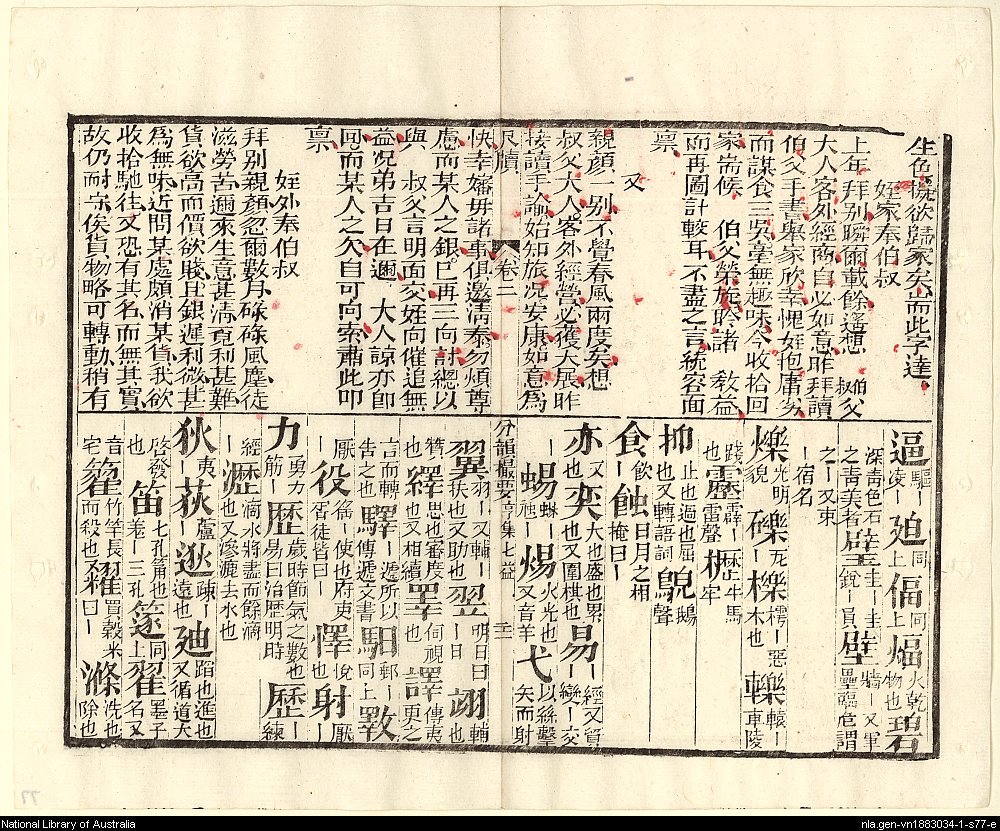 生色擬欲歸家矣而此字達
姪家奉伯叔
上年 拜別瞬爾載餘遙想 伯叔父
大人客外經商自必如意昨拜讀
伯父手書舉家欣幸愧姪抱庸劣
而謀食三吳毫無趣味今收拾回
家耑候 伯父榮旋昣諸 敎益
而再圖計較耳不盡之言統容面
禀
又
親顏一别不覺春風兩度矣想
叔父大人客外經營必獲大展昨
接讀手諭始知旅况安康如意爲
尺牘 卷二
快幸嬸毋諸事俱邀清泰勿煩尊
慮而某人之銀巳再三向討總以
與 叔父言明面交姪向催追無
益况弟吉日在邇 大人諒亦卽
囘而某人之欠自可向索肅此叩
禀
姪外奉伯叔
拜别親顏忽爾數月碌碌風塵徒
滋勞苦邇來生意甚清覔利甚難
貨欲高而價欲賤且銀遲利微甚
爲無味近問某處頗消某貨我欲
收拾馳往又恐有其名而無其實
故仍耐守俟貨物略可轉動稍有
逼驅｜凌｜廹同上偪同上煏火乾物也碧
深青色石｜壁圭｜圭｜牆｜又軍
之青美者璧銳｜員壁壘臨危謂
之｜又東
｜宿名
爍光明貌礫瓦｜櫟樗｜惡木也轢轅｜車陵
踐也靂霹｜雷聲櫪｜歷牛馬牢
抑止也遏也屈也又轉語詞鶃鵝聲
食飲｜蝕日月之相掩曰｜
亦又｜也奕大也盛也累也又圍棋也易｜經又貿｜變｜交
｜蜴蜥｜虺｜焬火光也又音羊弋以絲擊矢而射
分韻撮要 亨集七益 三二
翼羽｜又輔｜扶也又助也翌明日曰｜日翊輔
贊｜也繹思也審度也又相續罩伺視也譯傳夷
言而轉｜告之也驛｜遞所以傳遞文書馹郵｜同上斁更之
厭｜役｜徭｜使也府吏胥徒皆曰｜懌悅也射厭｜
力勇力筋｜歷歲時節氣之數也易曰治歷明時歷｜練
經｜瀝｜滴水將盡而餘滴也又滲漉去水也
狄夷｜荻蘆｜逖疎｜遠也廸蹈也進也又循道大
啓發｜也笛七孔籥也卷｜三孔篴同上翟墨子名又
音宅籊｜竹竿長而殺也糴買穀米曰｜滌｜洗也除也